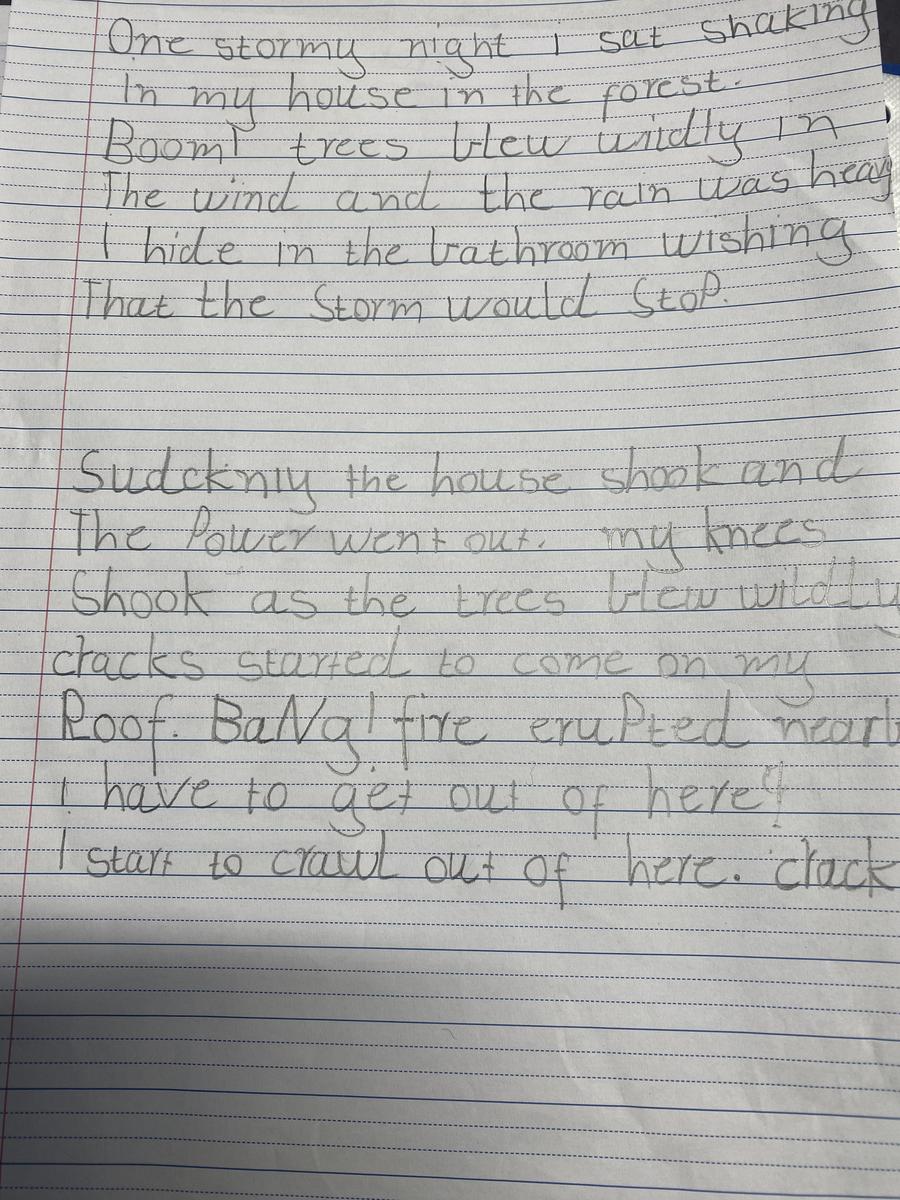 One stormy night I sat shaking
In my house in the forest.
Boom! trees blew wildly in
The wind and the rain was heavy
I hide in the bathroom wishing
That the Storm would Stop.
Sudcknly the house shook and
The Power went out. my knees
Shook as the trees blew wildly
cracks started to come on my
Roof. BaNg! fire eruPted nearb
I have to get out of here!
I start to crawl out of here. crack